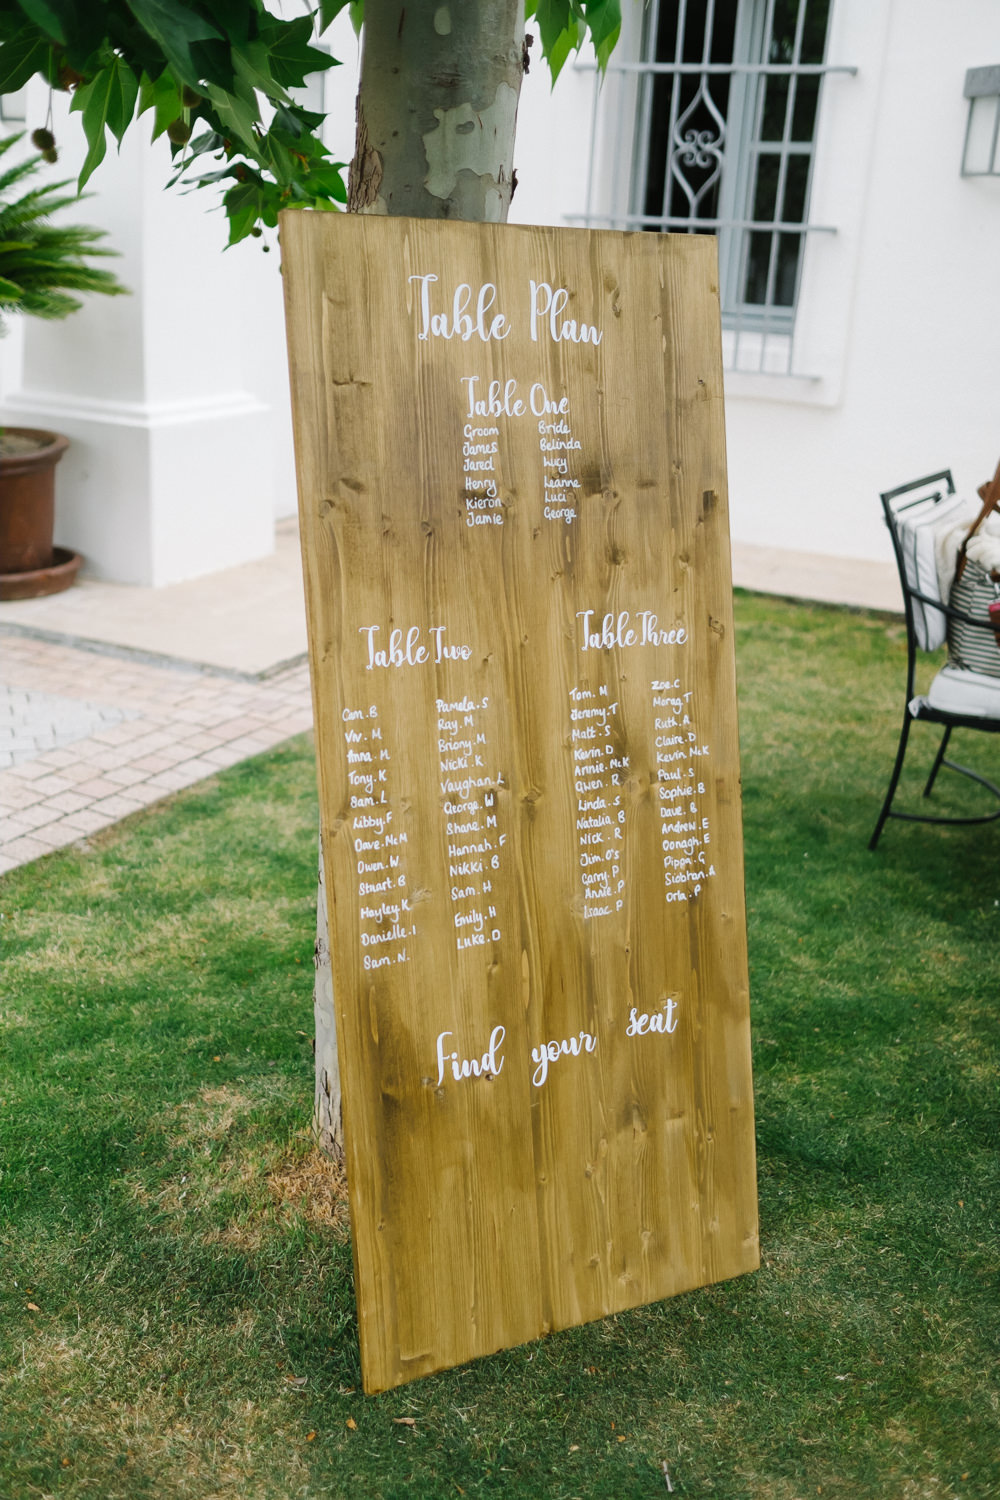 Table Plan
Table One
Groom
James
Jared
Henry
Kieron
Jamie
Bride
Belinda
Lucy
Leanne
Luci
George
Table Two
Cam. B
Viv. M
Anna. M
Tony. K
Sam. L
Libby. F
Dave. McM
Owen. W
Stuart. B
Hayley. K
Danielle. I
Sam. N.
Pamela. S
Ray. M
Briony. M
Nicki. K
Vaughan. L
George. W
Shane. M
Hannah. F
Nikki. B
Sam. H
Emily. H
Luke. D
Table Three
Tom. M
Jeremy. T
Matt. S
Kevin. D
Annie. McK
Gwen. R
Linda. S
Natalia. B
Nick. R
Jim. O's
Carry. P
Annie. P
Isaac. P
Zoe. C
Morag. T
Ruth. A
Claire. D
Kevin. McK
Paul. S
Sophie. B
Dave. B
Andrew. E
Oonagh. E
Pippa. G
Siobhan. A
Orla. P
Find your seat